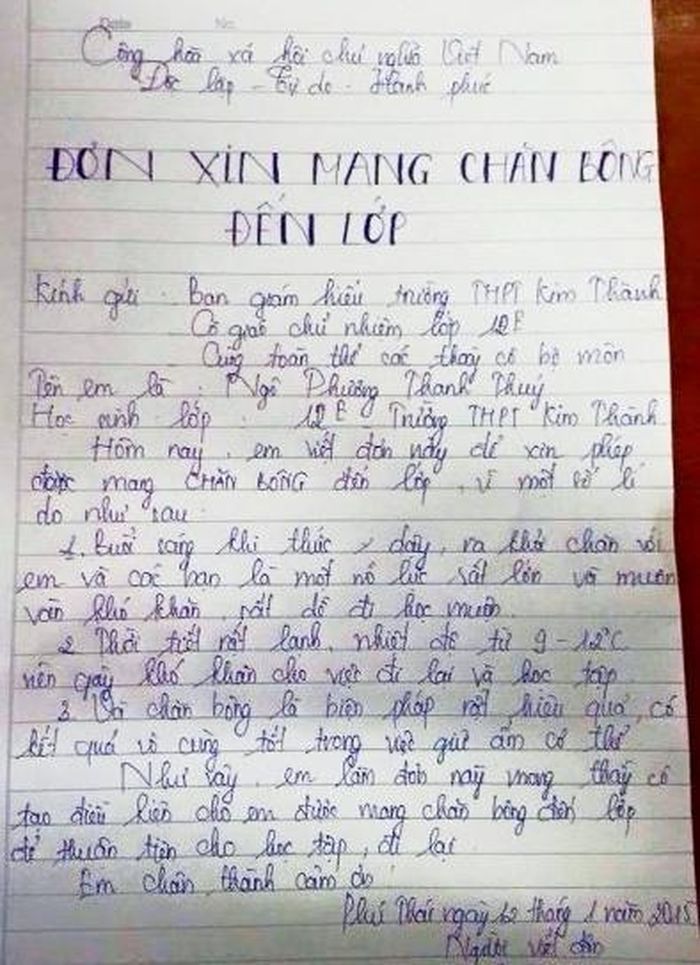 Date No.
Cộng hòa xã hội chủ nghĩa Việt Nam
Độc lập - Tự do - Hạnh phúc
ĐƠN XIN MANG CHĂN BÔNG
ĐẾN LỚP
Kính gửi : Ban giám hiệu trường THPT Kim Thành
Cô giáo chủ nhiệm lớp 12E
Cùng toàn thể các thầy cô bộ môn
Tên em là : Ngô Phương Thanh Thuý
Học sinh lớp : 12E - Trường THPT Kim Thành
Hôm nay, em viết đơn này để xin phép
được mang CHĂN BÔNG đến lớp, vì một số lí
do như sau :
1. Buổi sáng khi thức dậy, ra khỏi chăn với
em và các bạn là một nỗ lực rất lớn và muôn
vàn khó khăn, rất dễ đi học muộn.
2. Thời tiết rất lạnh, nhiệt độ từ 9 - 12°C
nên gây khó khăn cho việc đi lại và học tập.
3. Và chăn bông là biện pháp rất hiệu quả, có
kết quả vô cùng tốt trong việc giữ ấm cơ thể
Như vậy, em làm đơn này mong thầy cô
tạo điều kiện cho em được mang chăn bông đến lớp
để thuận tiện cho học tập, đi lại.
Em chân thành cảm ơn
Phú Thái ngày 12 tháng 1 năm 2015
Người viết đơn